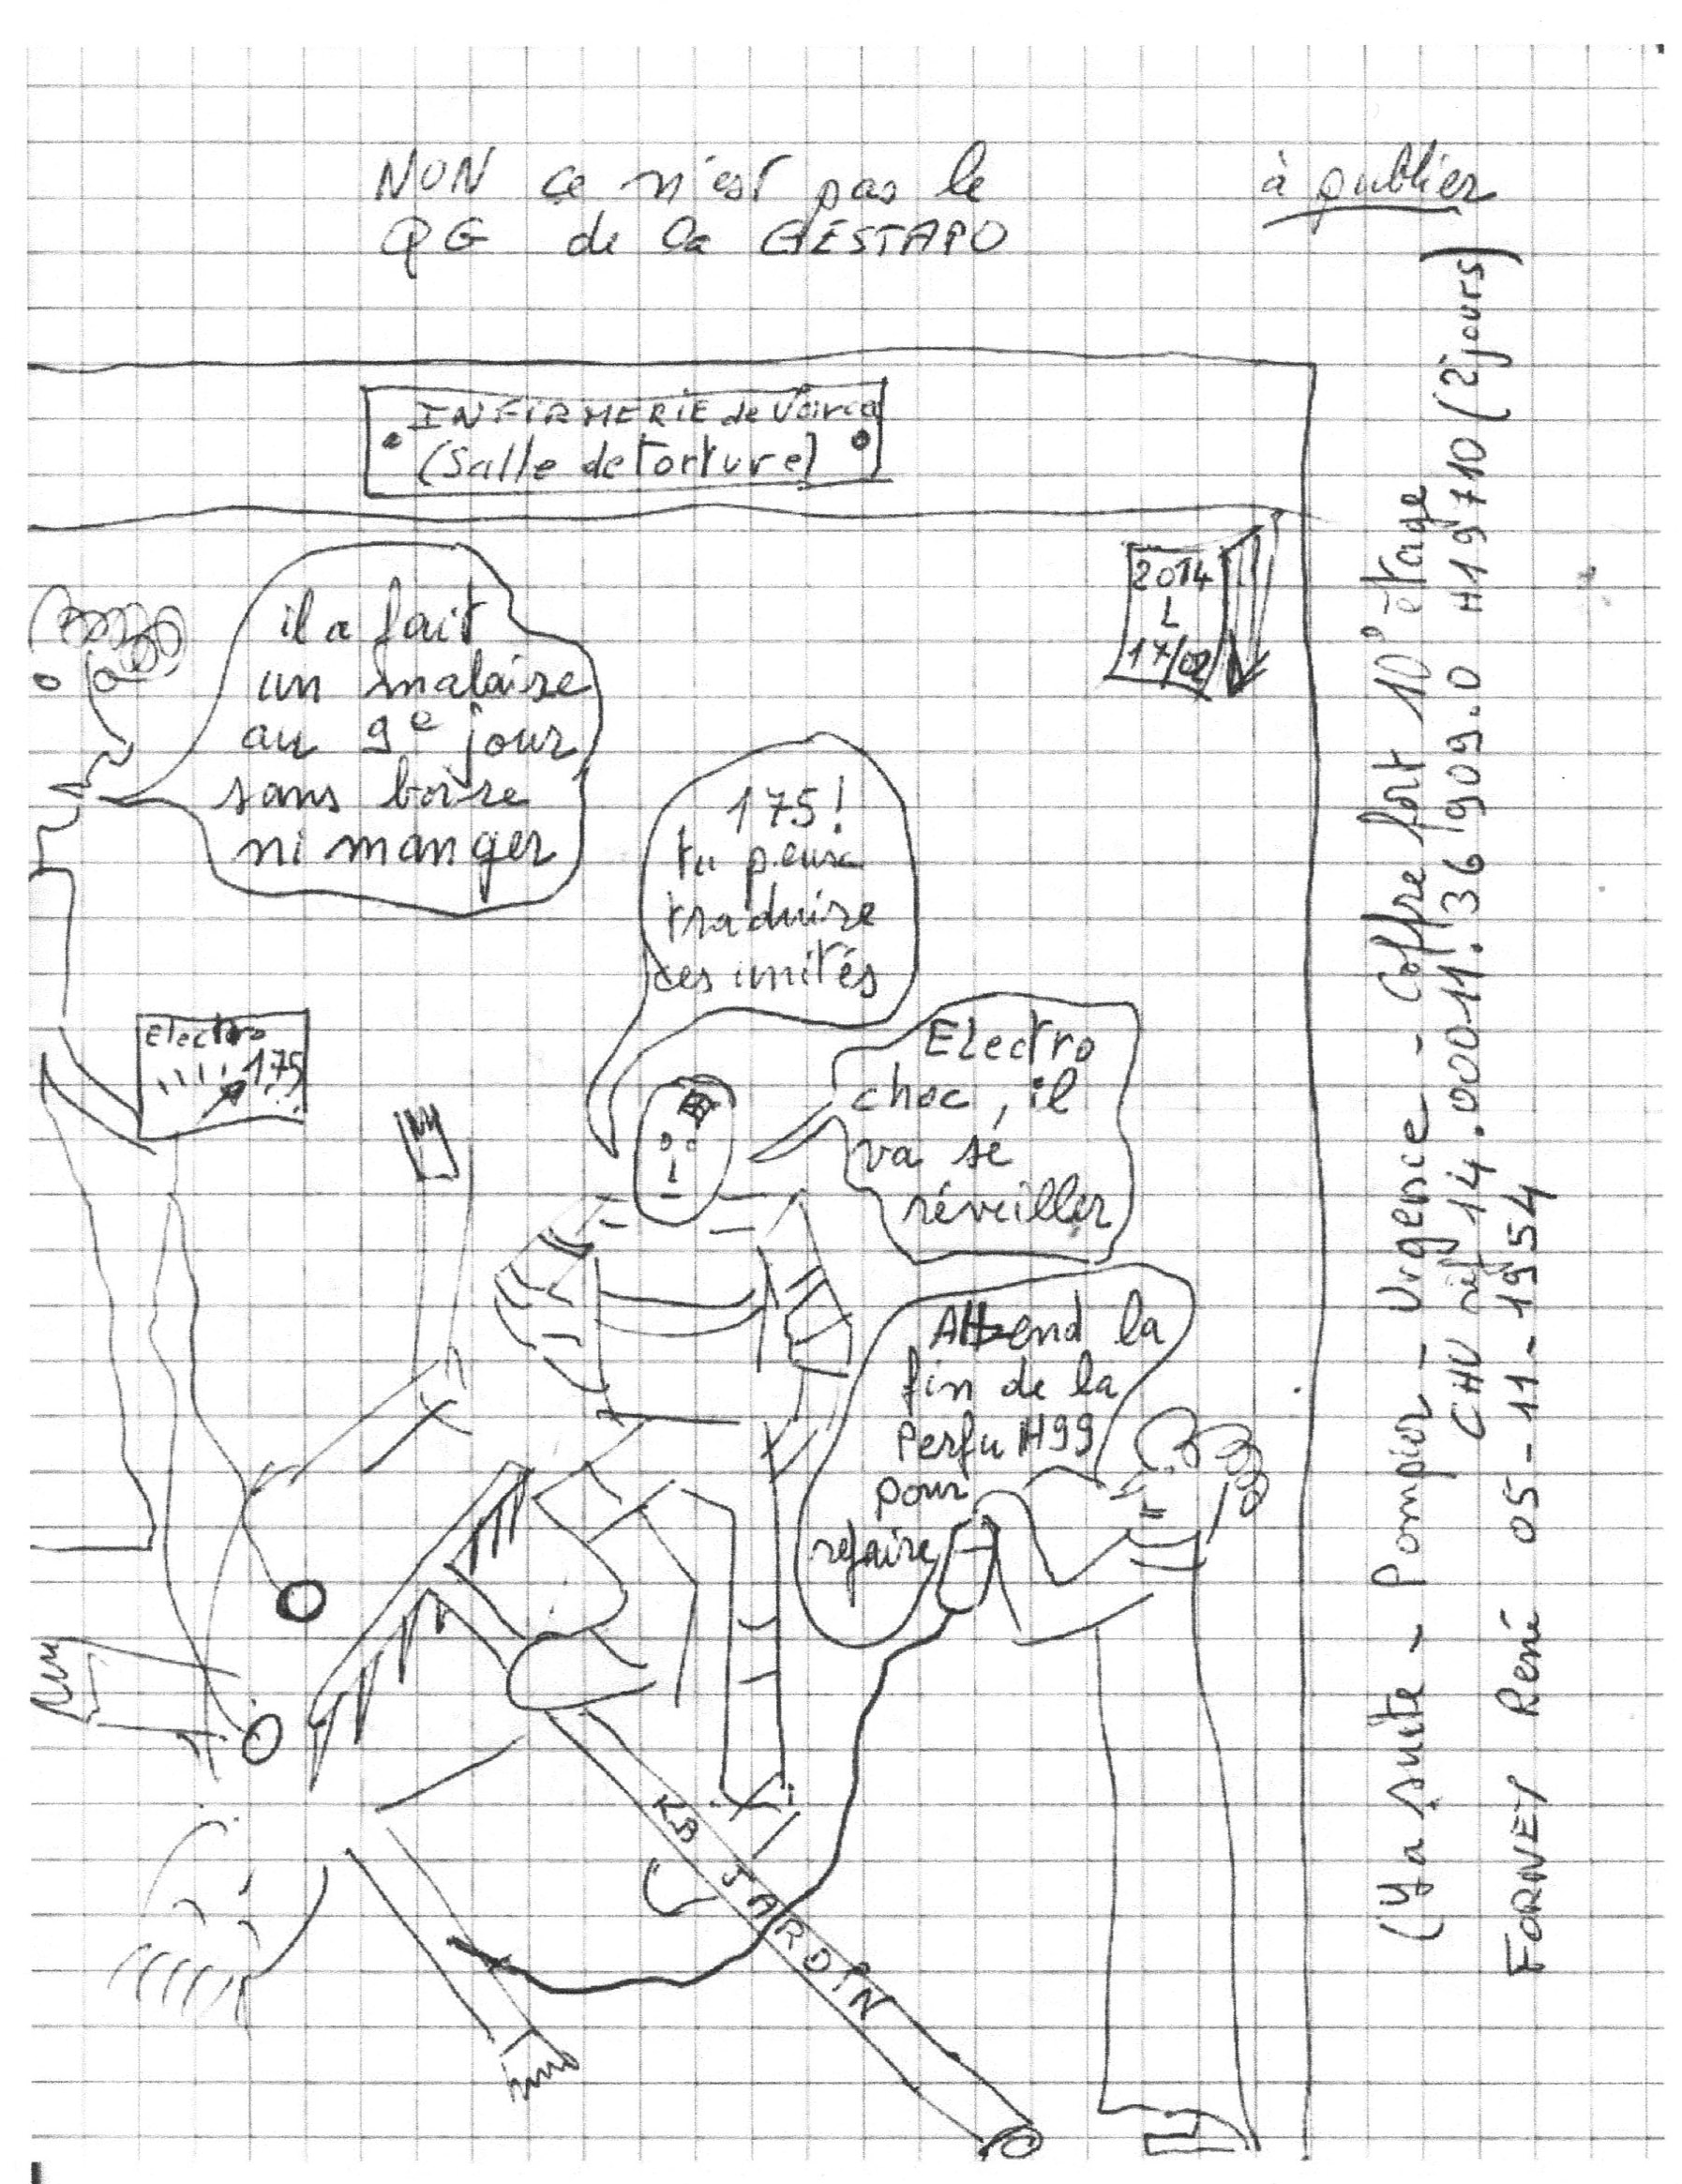 NON ce n'est pas le
QG de la GESTAPO
à publier
INFIRMERIE de Varces
(Salle de Torture)
2014
L
17/02
il a fait
un malaise
au 9e jour
sans boire
ni manger
175!
tu peux
traduire
ces unités
Electro
175
Electro
choc, il
va sé
réveiller
Attend la
fin de la
Perfu H99
pour
refaire
KB JARDIN
(Y a suite - Pompier - Urgence - Coffre fort 10° étage
CHU réf 14.00011.36909.0 H19710 (2 jours)
FORNEY René 05-11-1954